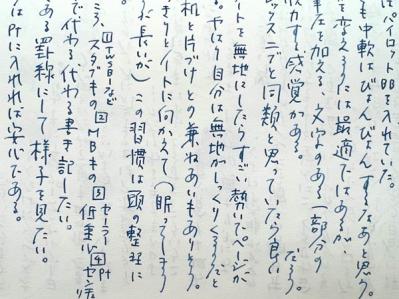 はパイロットBBを入れていた。
も中軟はぴょんぴょんするなあと思う。
を変えるには最適ではあるが、
筆圧を加える、文字のある一部分の
吸力する感覚がある。
だろう。
ックスニブと同類と思っていたら良い
ートを無地にしたらすごい勢いでページが
。やはり自分は無地がしっくりくるのだと
机と片づけとの兼ねあいもありそう。
きりとイトに向かえて(眠ってしまう
が長いが)この習慣は頭の整理に
ころ、スタブキの②MBキの③セーラー④Pt
①TWSBIなど
低重心 センチュ
で代わる代わる書き記したい。
ある罫線にして様子を見たい。
はPtに入れれば安心である。